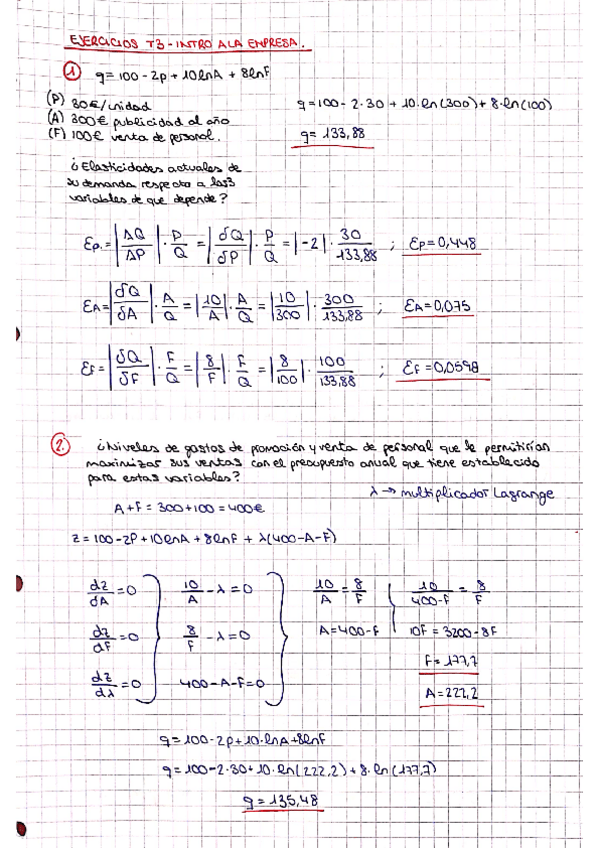 EJERCICIOS T3 - INTRO A LA EMPRESA.
1 q = 100 - 2p + 10lnA + 8lnF
(P) 30€/unidad
(A) 300€ publicidad al año
(F) 100€ venta de personal.
q = 100 - 2·30 + 10·ln(300) + 8·ln(100)
q = 133,88
¿Elasticidades actuales de
su demanda respecto a las 3
variables de que depende?
Ep. = |ΔQ/ΔP| · P/Q = |δQ/δP| · P/Q = |-2| · 30/133,88 ; Ep = 0,448
EA = |δQ/δA| · A/Q = |10/A| · A/Q = |10/300| · 300/133,88 ; EA = 0,075
EF = |δQ/δF| · F/Q = |8/F| · F/Q = |8/100| · 100/133,88 ; EF = 0,0598
2. ¿Niveles de gastos de promoción y venta de personal que le permitirían
maximizar sus ventas con el presupuesto anual que tiene establecido
para estas variables?
λ → multiplicador Lagrange
A + F = 300 + 100 = 400€
z = 100 - 2P + 10lnA + 8lnF + λ(400 - A - F)
dz/dA = 0 10/A - λ = 0 10/A = 8/F 10/400-F = 8/F
dz/dF = 0 8/F - λ = 0 A = 400 - F 10F = 3200 - 8F
F = 177,7
dz/dλ = 0 400 - A - F = 0 A = 222,2
q = 100 - 2p + 10·lnA + 8lnF
q = 100 - 2·30 + 10·ln(222,2) + 8·ln(177,7)
q = 135,48